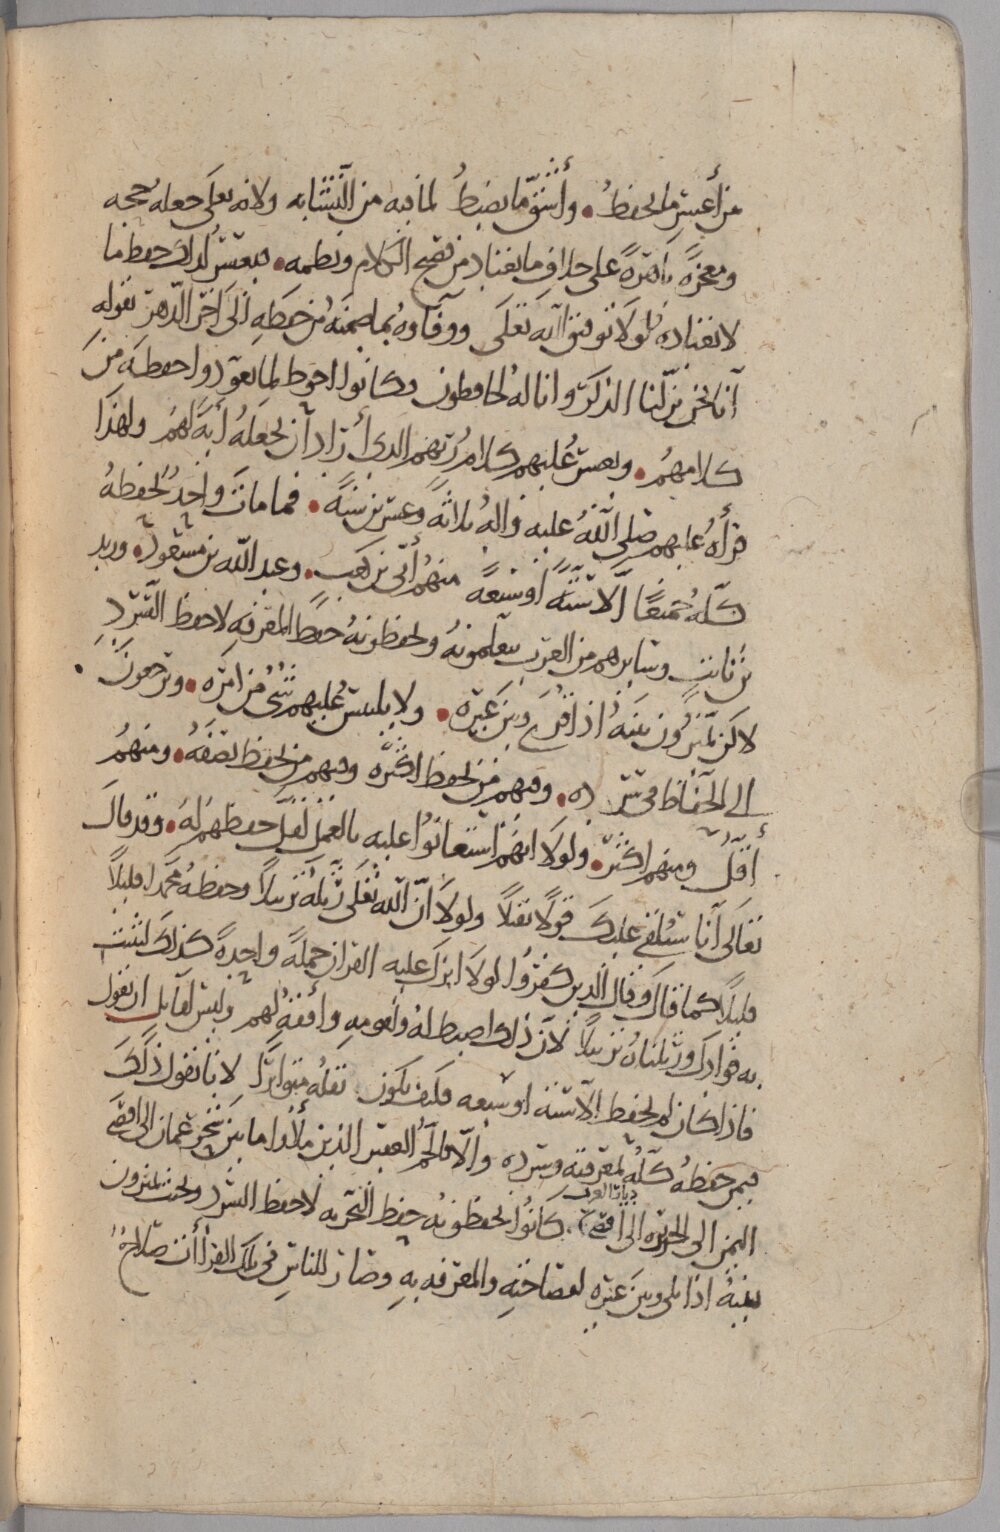 من أعسر ما يحفظ . وأشق ما يضبط لما فيه من المتشابه ولانه تعلى جعله حجه
ومعجزة باهرة على خلاف ما يعتاد من فصيح الكلام ونظمه . فيعسر لذلك حفظ ما
لا يعتاده لولا توفيق الله تعلى ووفاوه بما ضمنه من حفظه الى اخر الدهر بقوله
انا نحن نزلنا الذكر وانا له لحافظون وكانوا احوط لما يعودوا حفظه من
كلامهم . ويعسر عليهم كلام ربهم الذى أراد أن يجعله أية لهم ولهذا
قرأه عليهم صلى الله عليه واله ثلاثة وعشرين سنة . فما مات واحد يحفظه
كله جميعا الا ستة أو سبعة منهم أبى بن كعب . وعبد الله بن مسعود . وزيد
بن ثابت وسايرهم من العرب يتعلمونه ويحفظونه حفظ المعرفه لا حفظ السرد
لا كن يميزون بينه اذا قرى وبين غيره . ولا يلبس عليهم شى من امره . ويرجعون
الى الحفاظ فى سرده . ومنهم من يحفظ اكثره ومنهم من يحفظ نصفه . ومنهم
أقل ومنهم اكثر . ولولا انهم استعانوا عليه بالعمل لقل حفظهم له . وقد قال
تعالى انا سنلقى عليك قولا ثقيلا ولولا أن الله تعلى رتله ترتيلا وحفظه محمدا قليلا
قليلا كما قال وقال الذين كفروا لولا انزل عليه القران جملة واحدة كذلك لنثبت
به فوادك ورتلناه ترتيلا لان ذلك اضبط له ولقومه وأفقه لهم وليس لقايل ان يقول
فاذا كان لم يحفظ الا ستة او سبعه فكيف يكون نقله متواترا لانا نقول ذلك
فيمن حفظه كله لمعرفته وسرده والا فالجم الغفير الذين ملأوا ما بين شحر عمان الى اقصى
اليمن الى الجزيره الى اقصى ديار العرب . كانوا يحفظونه حفظ التجربه لا حفظ السرد وبحيث يميزون
بينه اذا تلى وبين غيره لفصاحته والمعرفه به وصار للناس فى تلك القرأأت صلاح